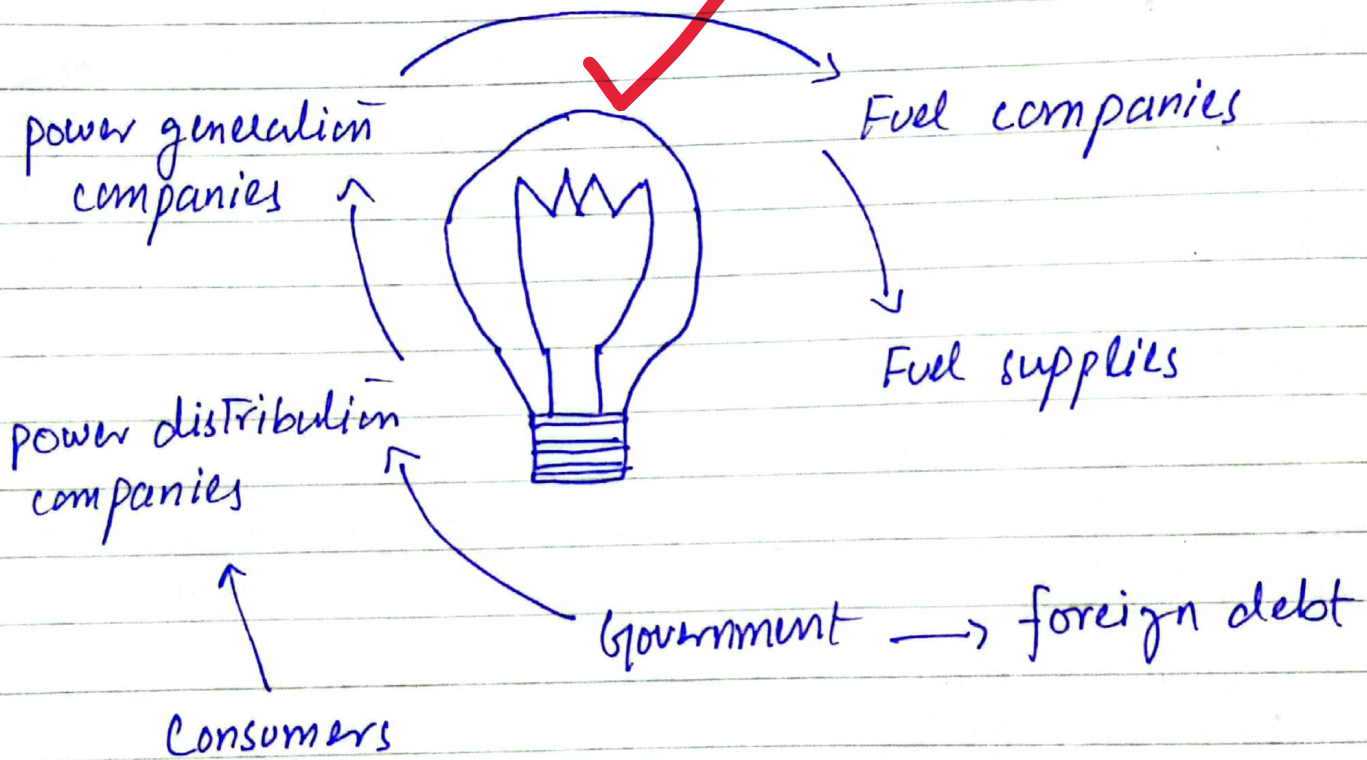 power generation
companies
Fuel companies
Fuel supplies
power distribution
companies
Government → foreign debt
Consumers